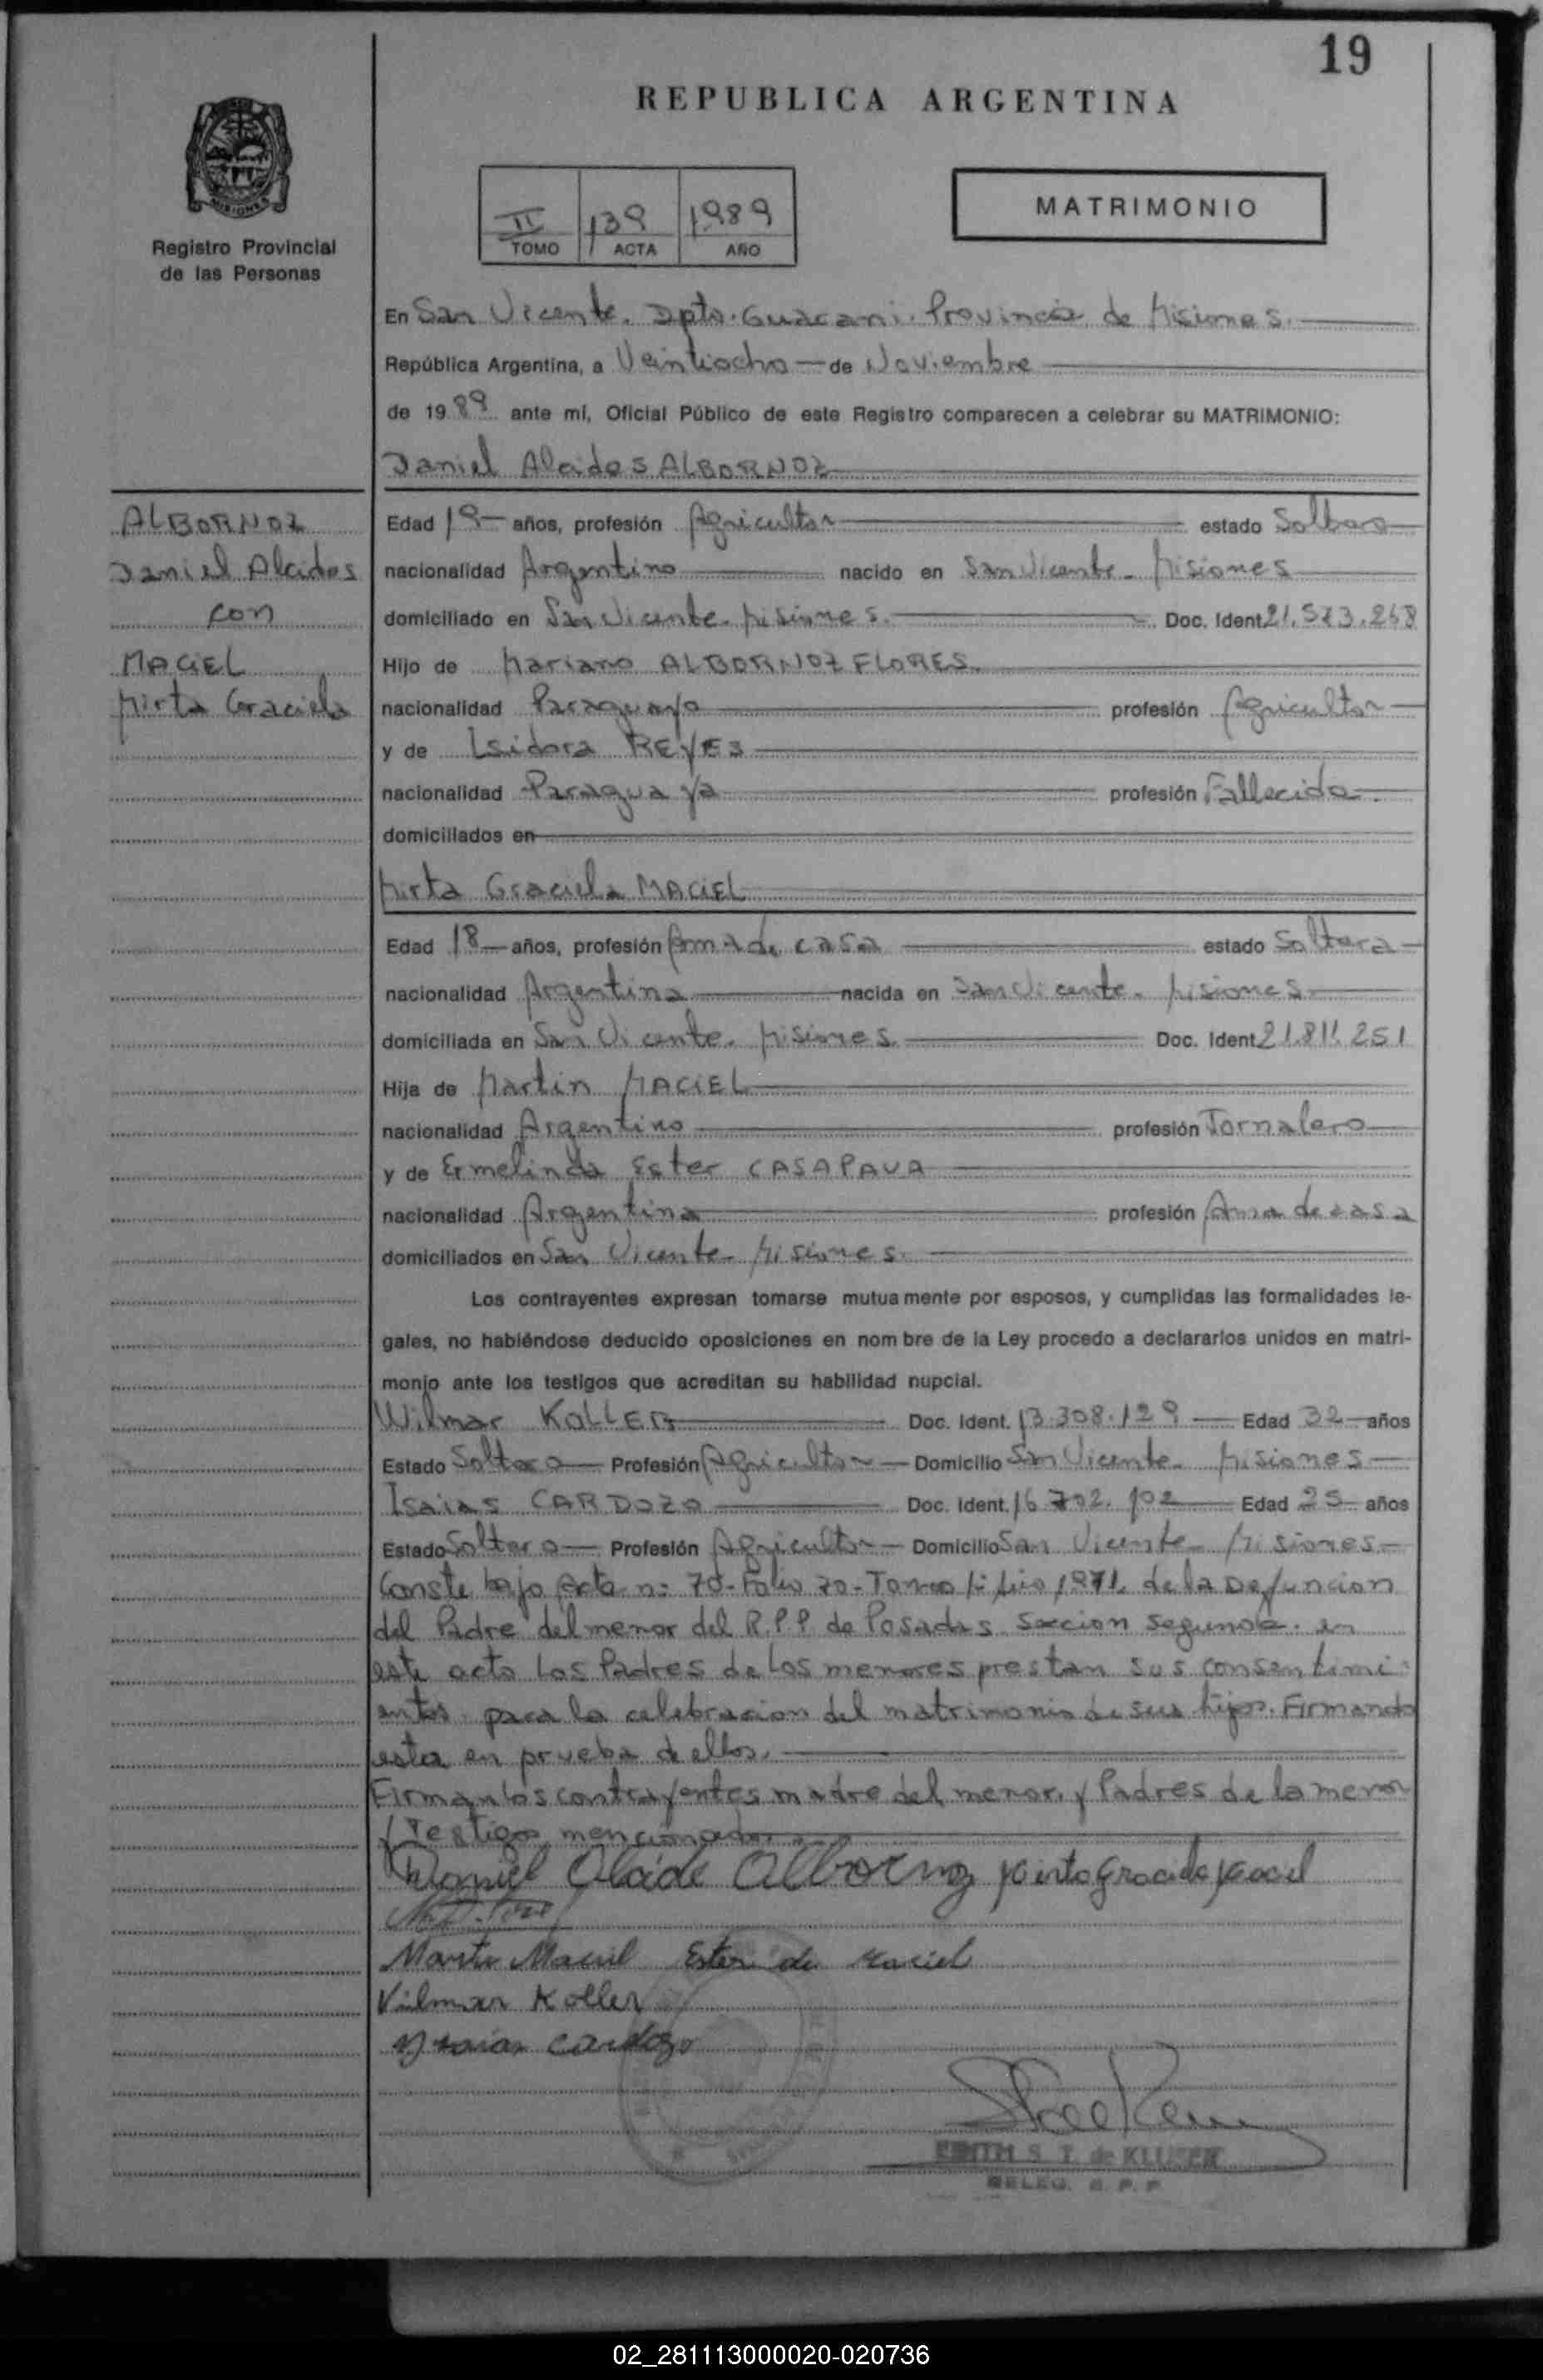 19
REPUBLICA ARGENTINA
MISIONES
Registro Provincial
de las Personas
II 139 1989
TOMO ACTA AÑO
MATRIMONIO
En San Vicente. Dpto. Guarani. Provincia de Misiones.
República Argentina, a Veintiocho de Noviembre
de 1989 ante mí, Oficial Público de este Registro comparecen a celebrar su MATRIMONIO:
Daniel Alcides ALBORNOZ
ALBORNOZ
Daniel Alcides
con
MACIEL
Mirta Graciela
Edad 19 años, profesión Agricultor estado Soltero
nacionalidad Argentino nacido en San Vicente - Misiones
domiciliado en San Vicente - Misiones. Doc. Ident. 21.523.268
Hijo de Mariano ALBORNOZ FLORES.
nacionalidad Paraguayo profesión Agricultor
y de Isidora REYES
nacionalidad Paraguaya profesión Fallecida
domiciliados en
Mirta Graciela MACIEL
Edad 18 años, profesión Ama de casa estado Soltera
nacionalidad Argentina nacida en San Vicente - Misiones
domiciliada en San Vicente - Misiones. Doc. Ident. 21.811.251
Hija de Martin MACIEL
nacionalidad Argentino profesión Jornalero
y de Ermelinda Ester CASAPAVA
nacionalidad Argentina profesión Ama de casa
domiciliados en San Vicente - Misiones.
Los contrayentes expresan tomarse mutuamente por esposos, y cumplidas las formalidades le-
gales, no habiéndose deducido oposiciones en nombre de la Ley procedo a declararlos unidos en matri-
monio ante los testigos que acreditan su habilidad nupcial.
Wilmar KOLLER Doc. Ident. 13.308.129 Edad 32 años
Estado Soltero Profesión Agricultor Domicilio San Vicente - Misiones
Isaias CARDOZO Doc. Ident. 16.702.102 Edad 25 años
Estado Soltero Profesión Agricultor Domicilio San Vicente - Misiones
Conste bajo Acta n: 70 - Folio 70 - Tomo 1971. de la Defuncion
del Padre del menor del R.P.P. de Posadas Seccion Segunda. en
este acto los Padres de los menores prestan sus consentimi-
entos para la celebracion del matrimonio de sus hijos. Firmando
esta en prueba de ellos.
Firman los contrayentes madre del menor, y Padres de la menor
y Testigos mencionados.
Daniel Alcide Albornoz Mirta Graciela Maciel
Martin Maciel Ester de Maciel
Vilmar Koller
Isaias Cardozo
EDITH S. T. de KLUSEN
DELEG. R. P. P.
02_281113000020-020736